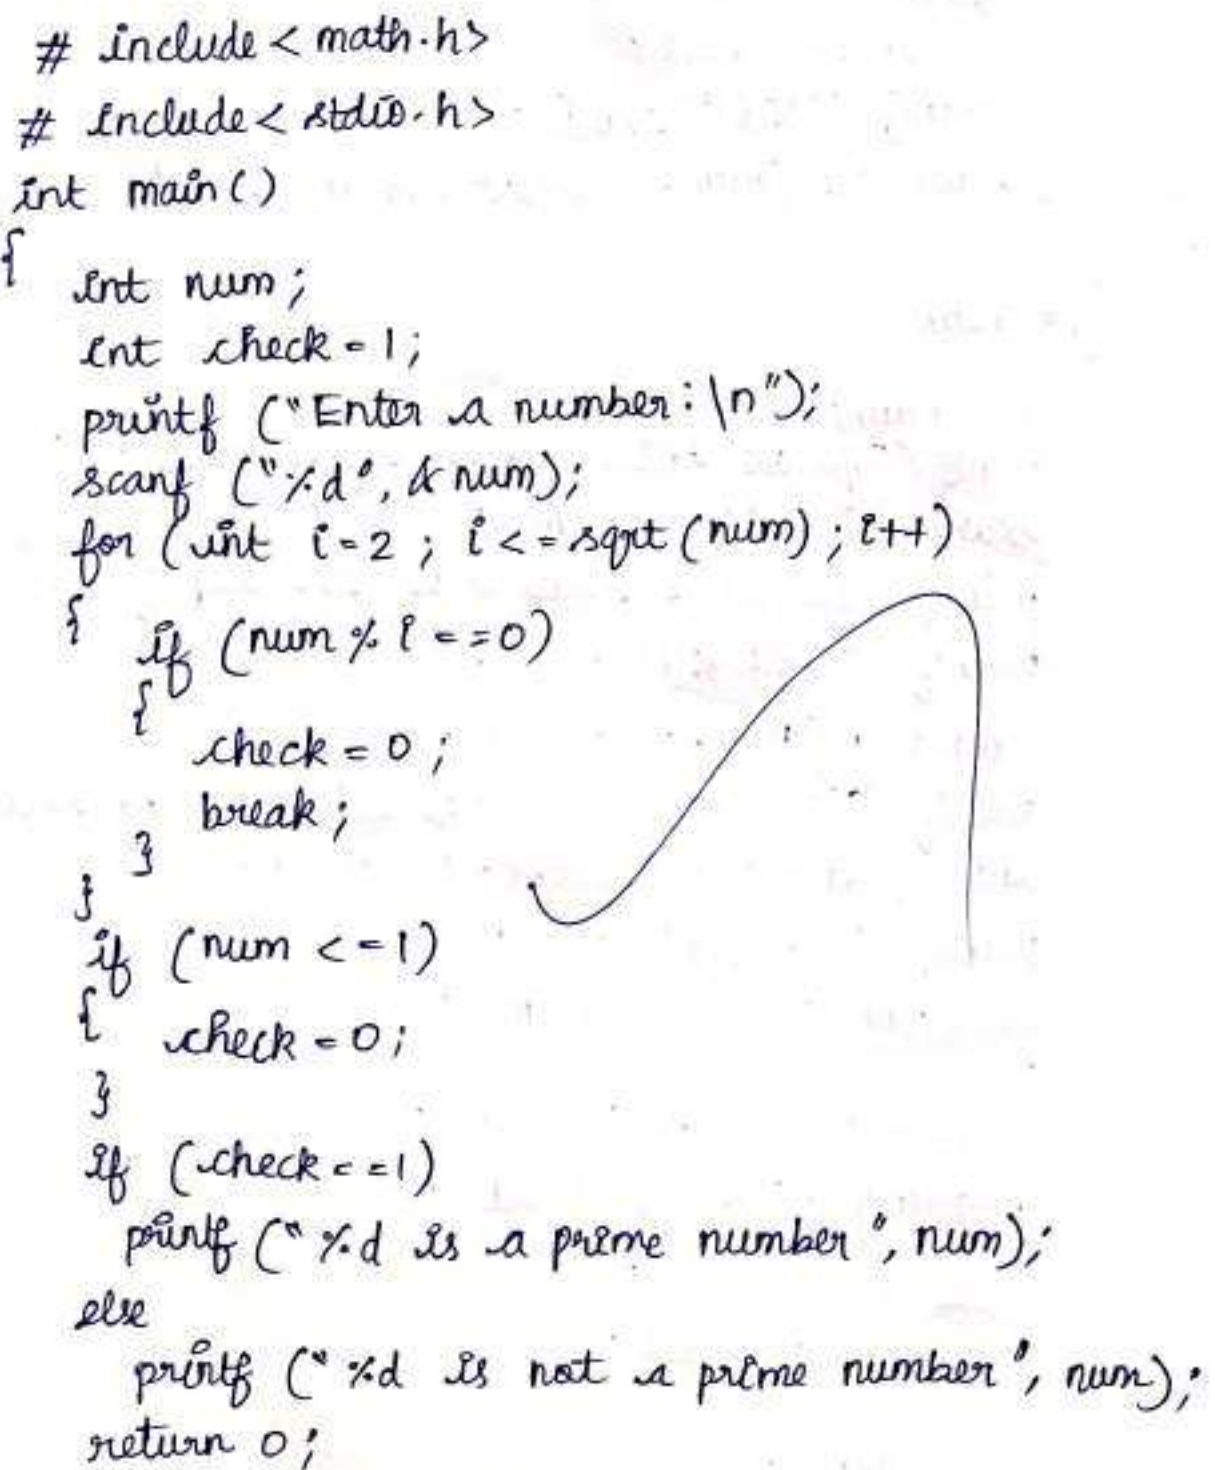 # include < math.h>
# include < stdio.h>
int main ()
{
int num;
int check = 1;
printf ("Enter a number: \n");
scanf ("%d", & num);
for (int i = 2 ; i <= sqrt (num) ; i++)
{ if (num % i == 0)
{
check = 0 ;
break ;
}
}
if (num <= 1)
{ check = 0 ;
}
if (check == 1)
printf (" %d is a prime number", num);
else
printf (" %d is not a prime number", num);
return 0 ;